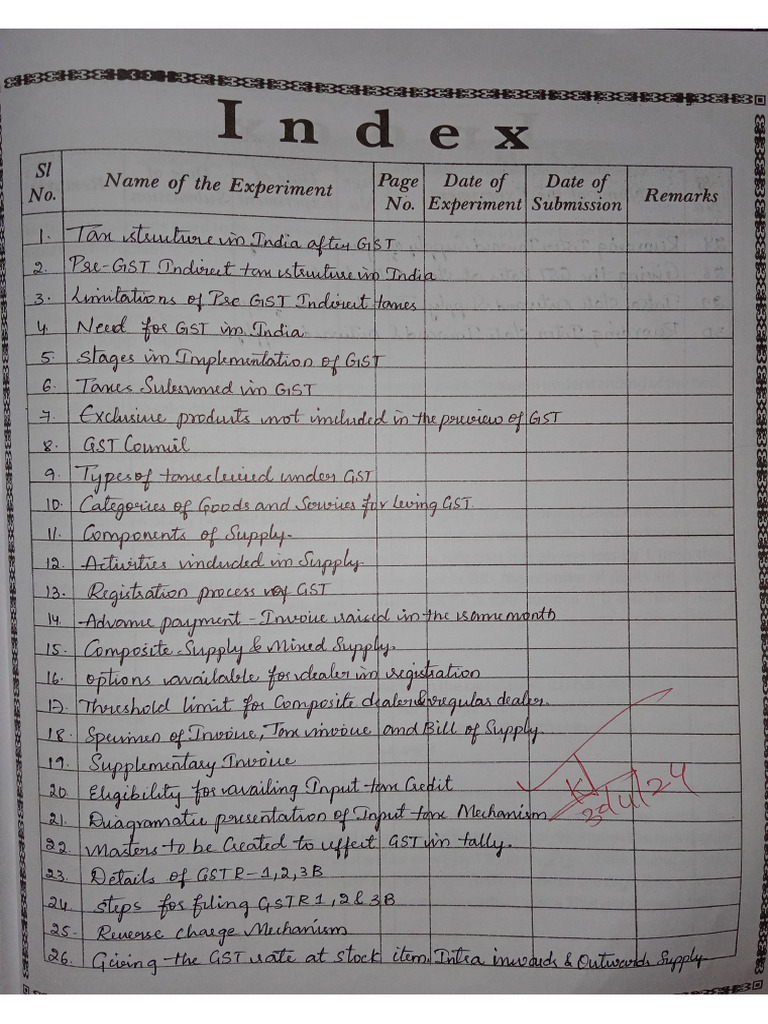 Index
Sl No. Name of the Experiment Page No. Date of Experiment Date of Submission Remarks
1. Tax structure in India after GST
2. Pre-GST Indirect tax structure in India
3. Limitations of Pre GST Indirect taxes
4. Need for GST in India
5. Stages in Implementation of GST
6. Taxes Subsumed in GST
7. Exclusive products not included in the preview of GST
8. GST Council
9. Types of taxes levied under GST
10. Categories of Goods and Services for Leving GST.
11. Components of Supply.
12. Activities included in Supply.
13. Registration process of GST
14. Advance payment - Invoice raised in the same month
15. Composite Supply & Mixed Supply.
16. options available for dealer in registration
17. Threshold limit for Composite dealer & regular dealer.
18. Specimen of Invoice, Tax invoice and Bill of Supply.
19. Supplementary Invoice
20. Eligibility for availing Input tax Credit
21. Diagramatic presentation of Input tax Mechanism
30/4/24
22. Masters to be Created to effect GST in tally.
23. Details of GSTR-1,2,3B
24. steps for filing GSTR1,2&3B
25. Reverse charge Mechanism
26. Giving the GST rate at stock item. Intra inwards & Outwards Supply